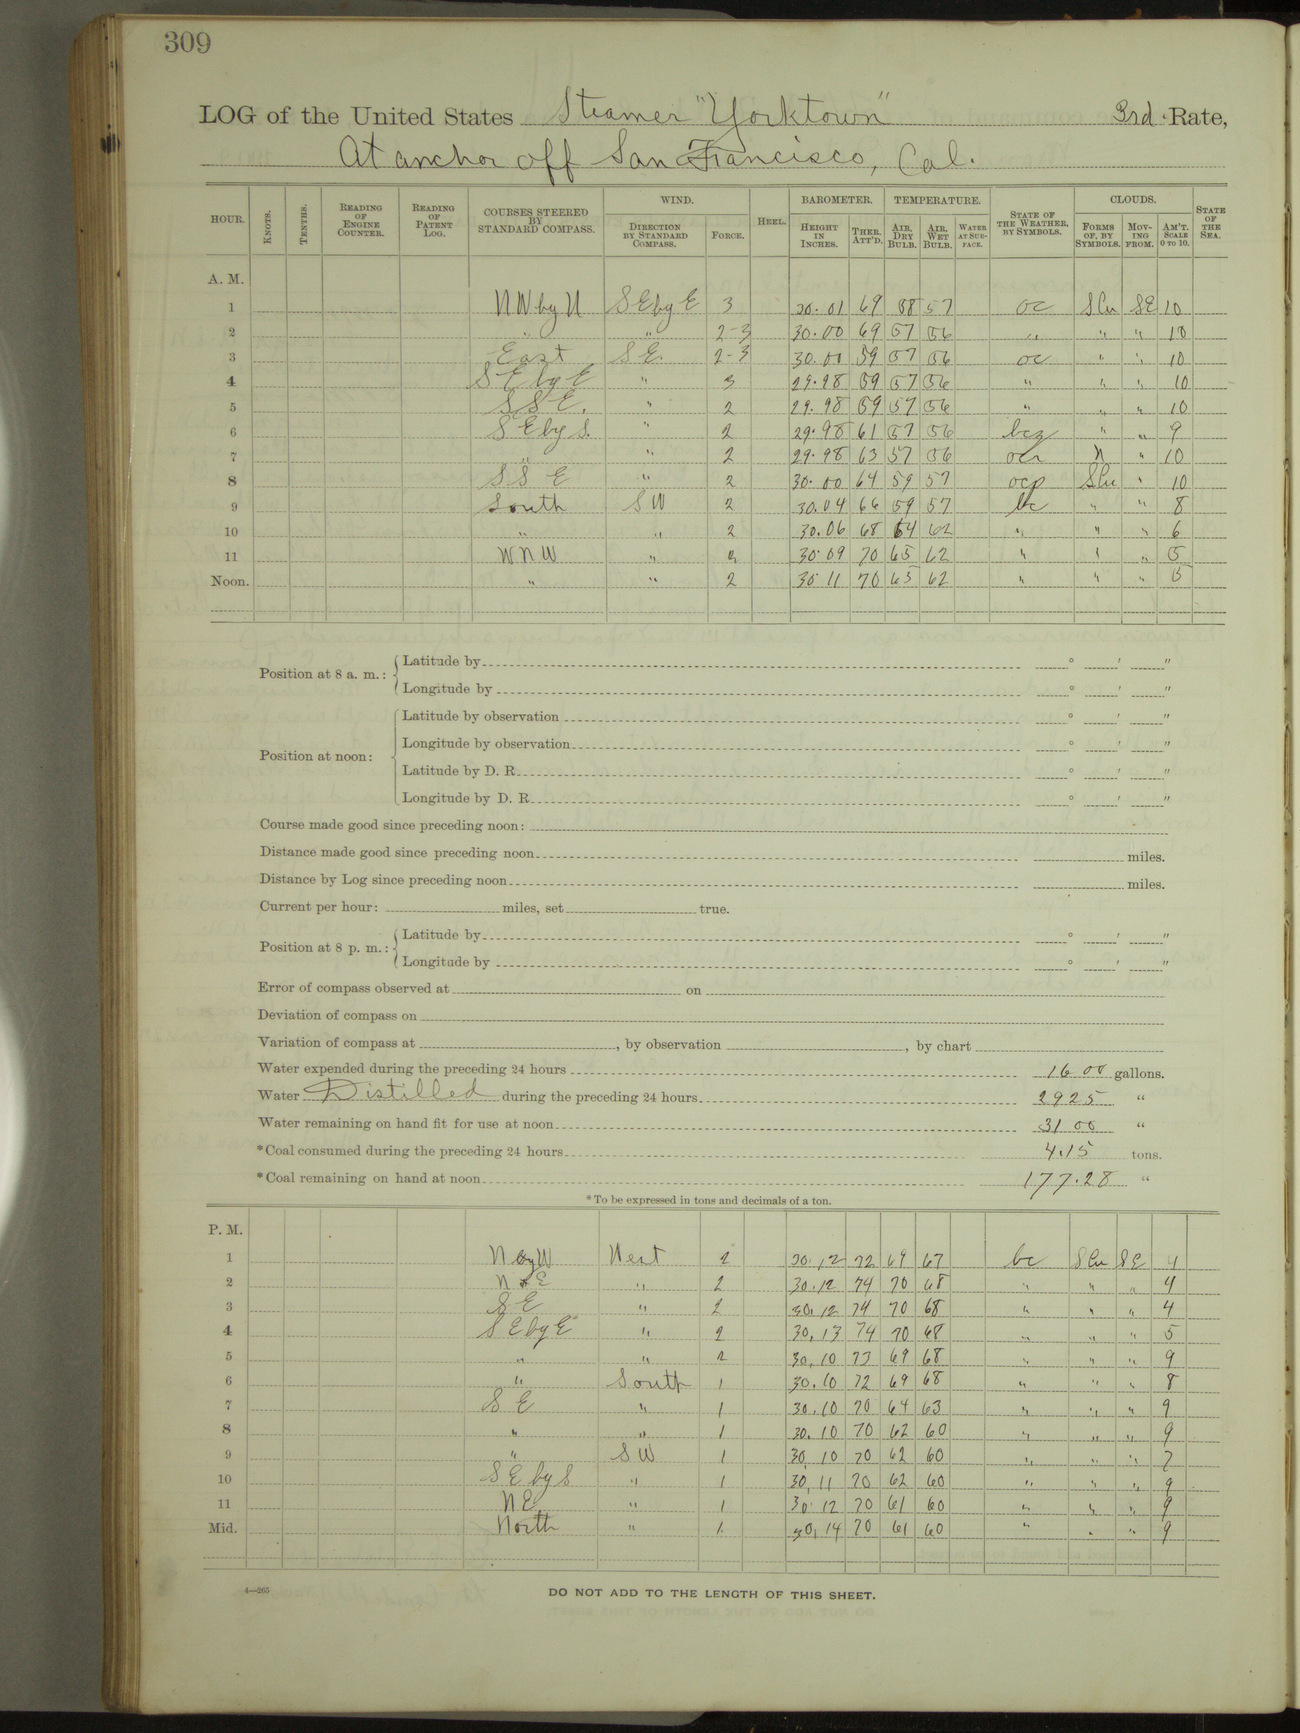 309
LOG of the United States Steamer "Yorktown" 3rd Rate,
At anchor off San Francisco, Cal.
HOUR. KNOTS. TENTHS. READING OF ENGINE COUNTER. READING OF PATENT LOG. COURSES STEERED BY STANDARD COMPASS. WIND. DIRECTION BY STANDARD COMPASS. FORCE. HEEL. BAROMETER. HEIGHT IN INCHES. THER. ATT'D. TEMPERATURE. AIR, DRY BULB. AIR, WET BULB. WATER AT SURFACE. STATE OF THE WEATHER, BY SYMBOLS. CLOUDS. FORMS OF, BY SYMBOLS. MOVING FROM. AM'T. SCALE 0 TO 10. STATE OF THE SEA.
A. M.
1 NW by N SE by E 3 30.01 69 58 57 oc SCu SE 10
2 " " 2-3 30.00 69 57 56 " " " 10
3 East SE. 2-3 30.00 59 57 56 oc " " 10
4 SE by E " 3 29.98 59 57 56 " " " 10
5 SSE. " 2 29.98 59 57 56 " " " 10
6 SE by S. " 2 29.98 61 57 56 bcz " " 9
7 " " 2 29.98 63 57 56 ocr N " 10
8 SSE " 2 30.00 64 59 57 ocp SCu " 10
9 South SW 2 30.04 66 59 57 bc " " 8
10 " " 2 30.06 68 64 62 " " " 6
11 WNW " 2 30.09 70 65 62 " " " 5
Noon. " " 2 30.11 70 65 62 " " " 5
Position at 8 a. m.: Latitude by ° ' "
Longitude by ° ' "
Position at noon: Latitude by observation ° ' "
Longitude by observation ° ' "
Latitude by D. R. ° ' "
Longitude by D. R. ° ' "
Course made good since preceding noon:
Distance made good since preceding noon miles.
Distance by Log since preceding noon miles.
Current per hour: miles, set true.
Position at 8 p. m.: Latitude by ° ' "
Longitude by ° ' "
Error of compass observed at on
Deviation of compass on
Variation of compass at , by observation , by chart
Water expended during the preceding 24 hours 1600 gallons.
Water Distilled during the preceding 24 hours 2925 "
Water remaining on hand fit for use at noon 3100 "
*Coal consumed during the preceding 24 hours 4.15 tons.
*Coal remaining on hand at noon 177.28 "
*To be expressed in tons and decimals of a ton.
P. M.
1 N by W West 2 30.12 72 69 67 bc SCu SE 4
2 " 2 30.12 74 70 68 " " " 4
3 SE " 2 30.12 74 70 68 " " " 4
4 SE by E " 2 30.13 74 70 68 " " " 5
5 " " 2 30.10 73 69 68 " " " 9
6 " South 1 30.10 72 69 68 " " " 8
7 SE " 1 30.10 70 64 63 " " " 9
8 " " 1 30.10 70 62 60 " " " 9
9 " SW 1 30.10 70 62 60 " " " 7
10 SE by S " 1 30.11 70 62 60 " " " 9
11 NE " 1 30.12 70 61 60 " " " 9
Mid. North " 1 30.14 70 61 60 " " " 9
4—265
DO NOT ADD TO THE LENGTH OF THIS SHEET.